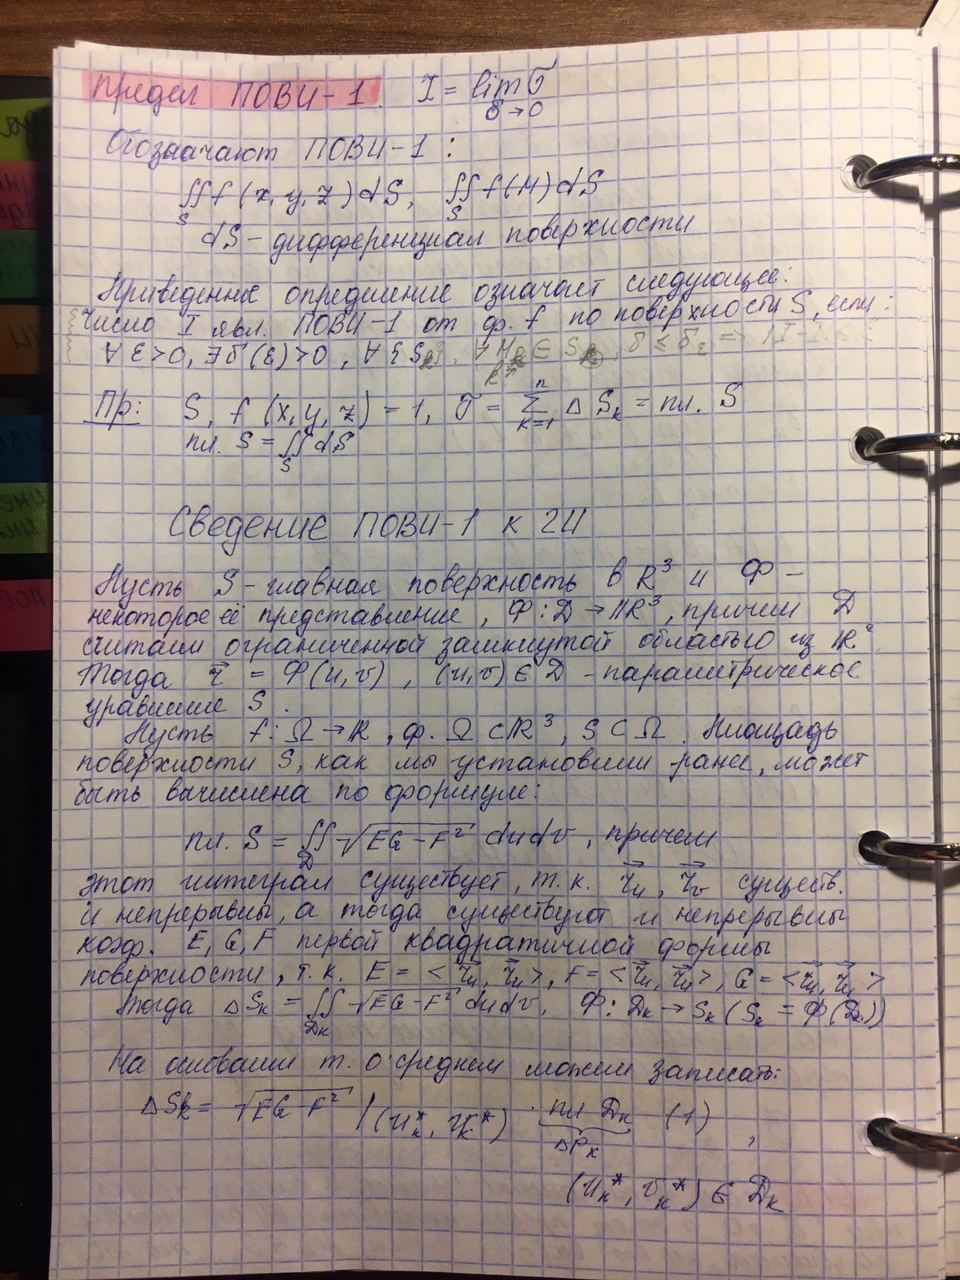 Предел ПОВИ-1. I = lim σ
δ→0
Обозначают ПОВИ-1:
∬ f(x,y,z)dS, ∬ f(M)dS
S S
dS - дифференциал поверхности
Приведенное определение означает следующее:
число I явл. ПОВИ-1 от ф. f по поверхности S, если:
∀ε>0, ∃δ(ε)>0, ∀{Sk}, ∀Mk ∈ Sk, δ ≤ δε ⇒ |I-
Пр: S, f(x,y,z) = 1, σ = ∑ k=1 n ΔSk = пл. S
пл. S = ∬ dS
S
Сведение ПОВИ-1 к 2И
Пусть S - главная поверхность в R³ и Ф -
некоторое её представление, Ф: D → R³, причем D
считаем ограниченной замкнутой областью из R²
Тогда r⃗ = Ф(u,v), (u,v) ∈ D - параметрическое
уравнение S.
Пусть f: Ω → R, ф. Ω ⊂ R³, S ⊂ Ω. Площадь
поверхности S, как мы установили ранее, может
быть вычислена по формуле:
пл. S = ∬ √(EG-F²) dudv, причем
D
этот интеграл существует, т.к. r⃗u, r⃗v существ.
и непрерывны, а тогда существуют и непрерывны
коэф. E, G, F первой квадратичной формы
поверхности, т.к. E = <r⃗u, r⃗u>, F = <r⃗u, r⃗u>, G = <r⃗u, r⃗u>
Тогда ΔSk = ∬ √(EG-F²) dudv, Ф: Dk → Sk (Sk = Ф(Dk))
Dk
На основании т. о среднем можем записать:
ΔSk = √(EG-F²) |(uk*, vk*) · пл Dk (1),
ΔPk
(uk*, vk*) ∈ Dk